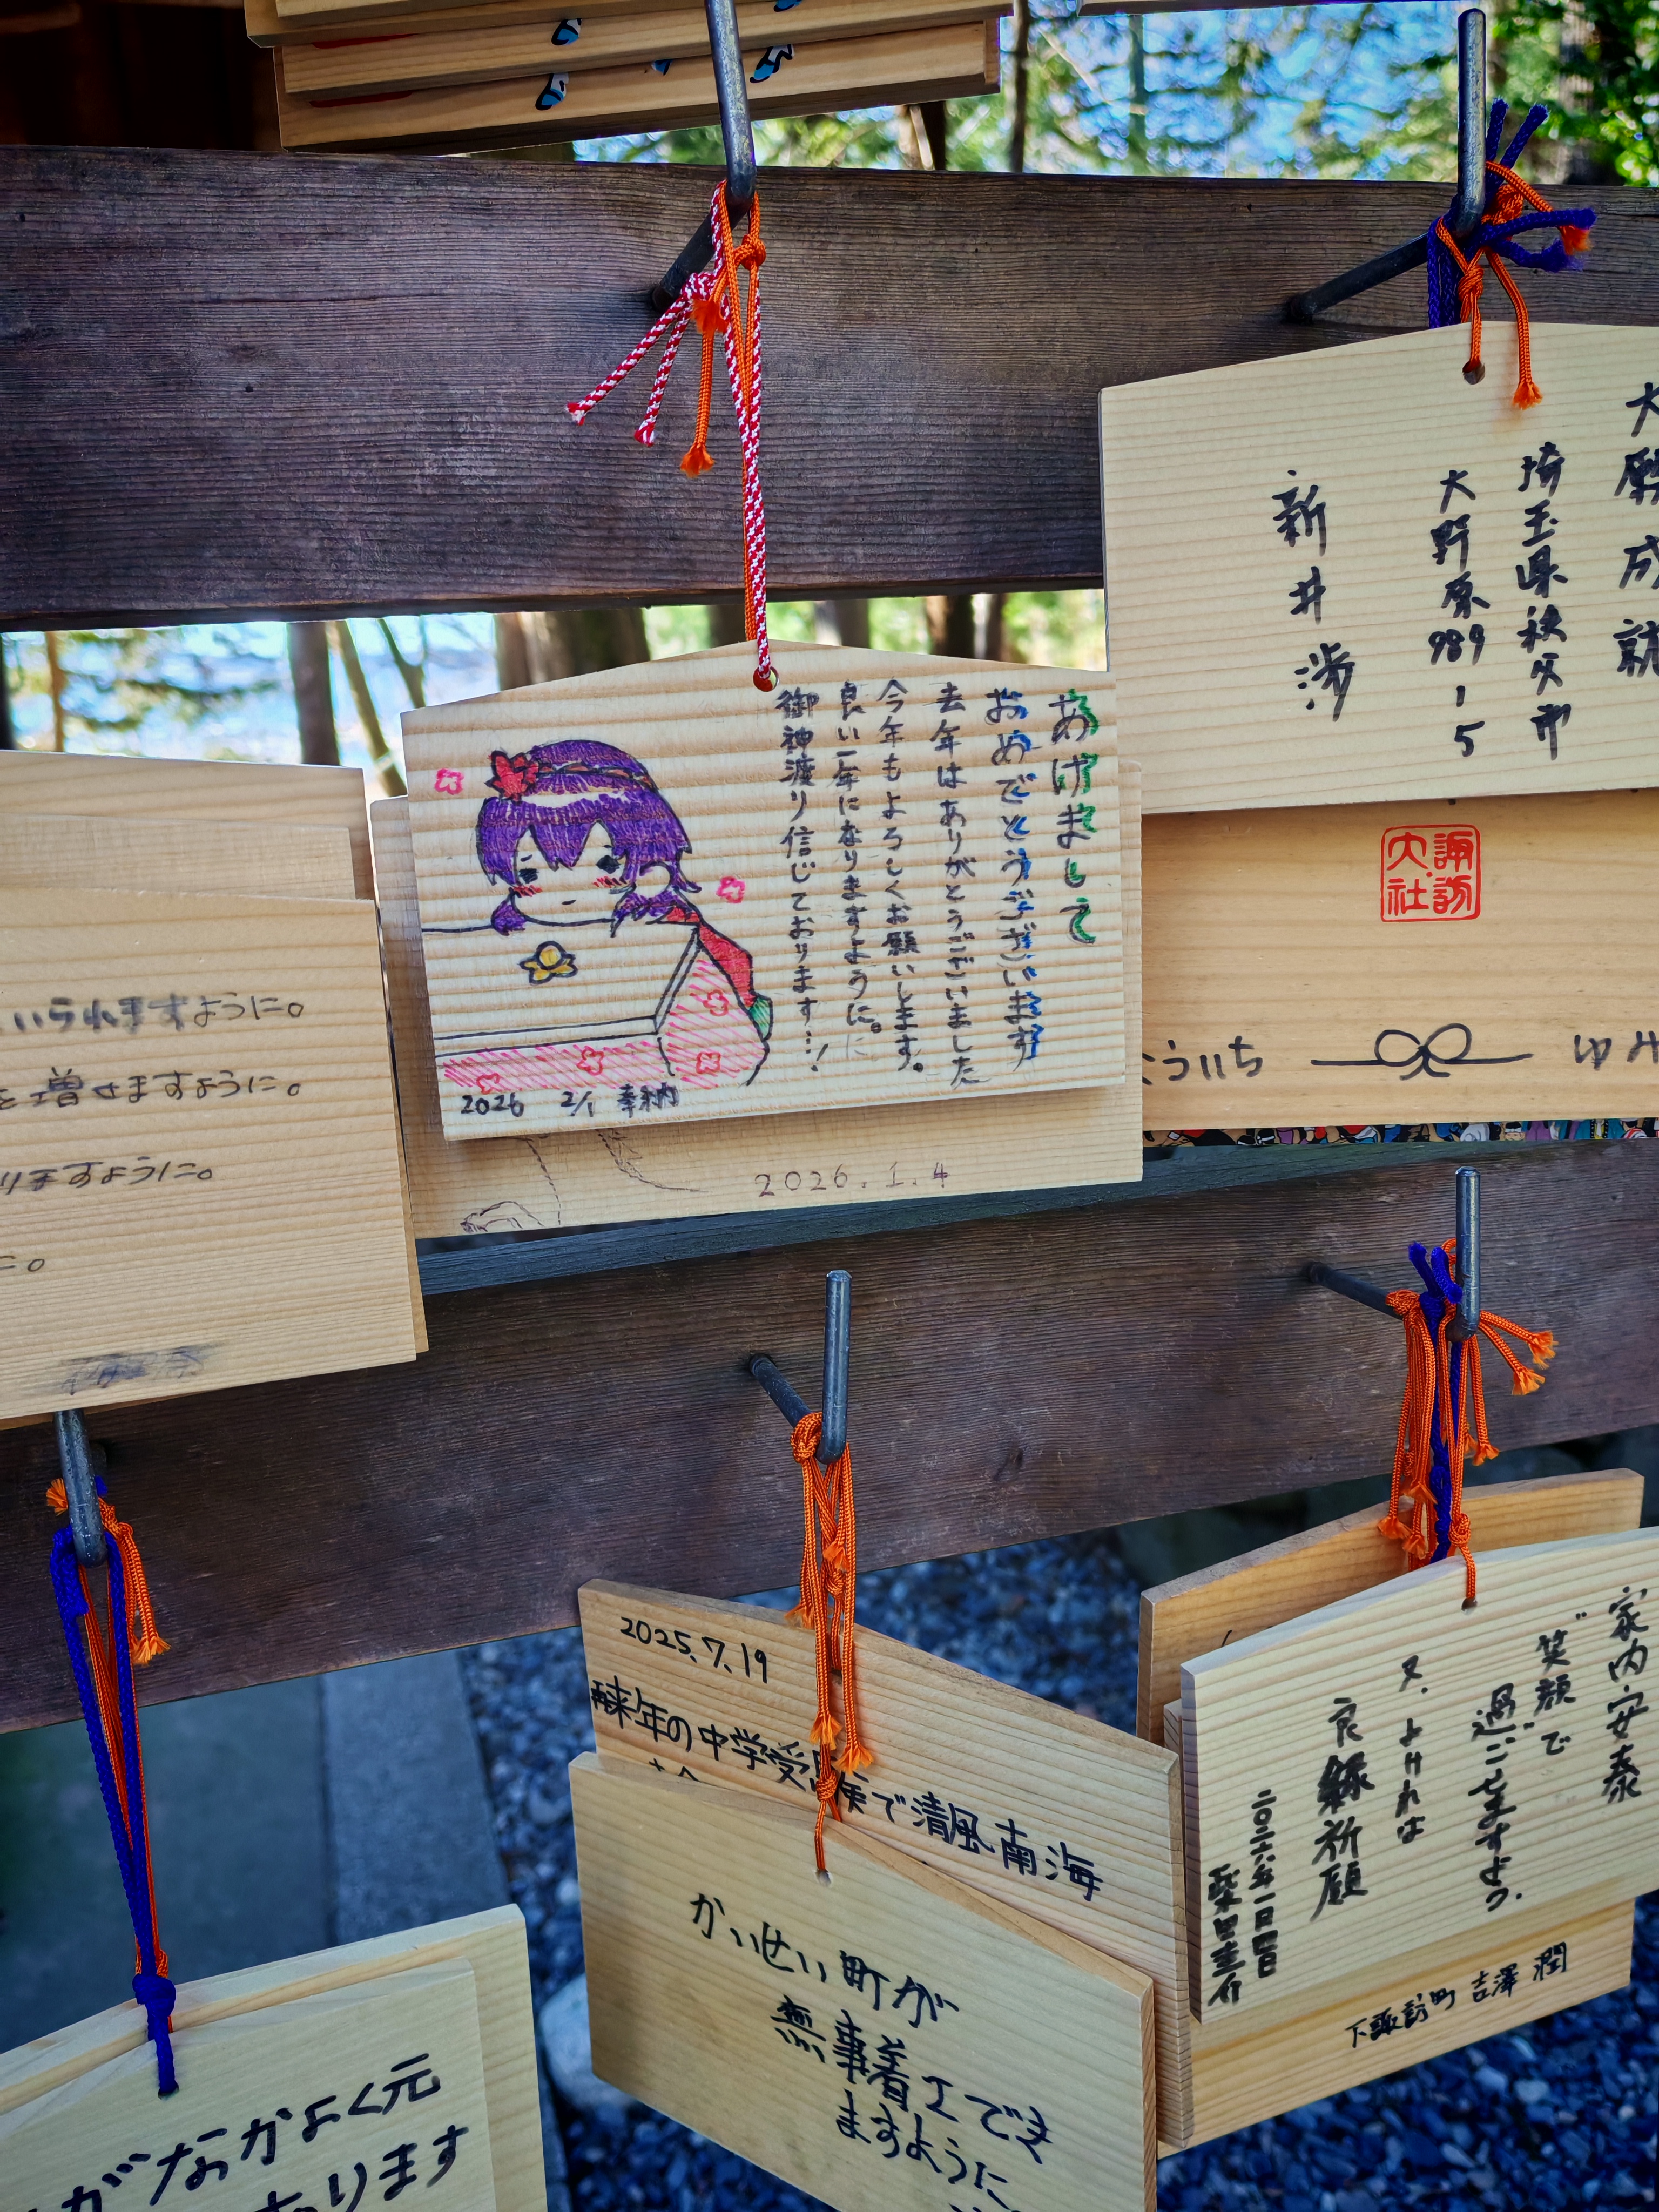 大願成就
埼玉県秩父市
大野原989-15
新井 渉
あけまして
おめでとうございます
去年はありがとうございました
今年もよろしくお願いします。
良い一年になりますように。
御神渡り信じております…!
2026 2/1 奉納
2026.1.4
諏訪
大社
ういち
ゆみ
いられますように。
を増せますように。
りますように。
に。
2025.7.19
来年の中学受験で清風南海
かいせい町が
無事着工でき
ますように
家内安泰
笑顔で
過ごせますよう。
又、よければ
良縁祈願
二〇二六年一月四日
下諏訪町 吉澤 潤
がなかよく元
ります